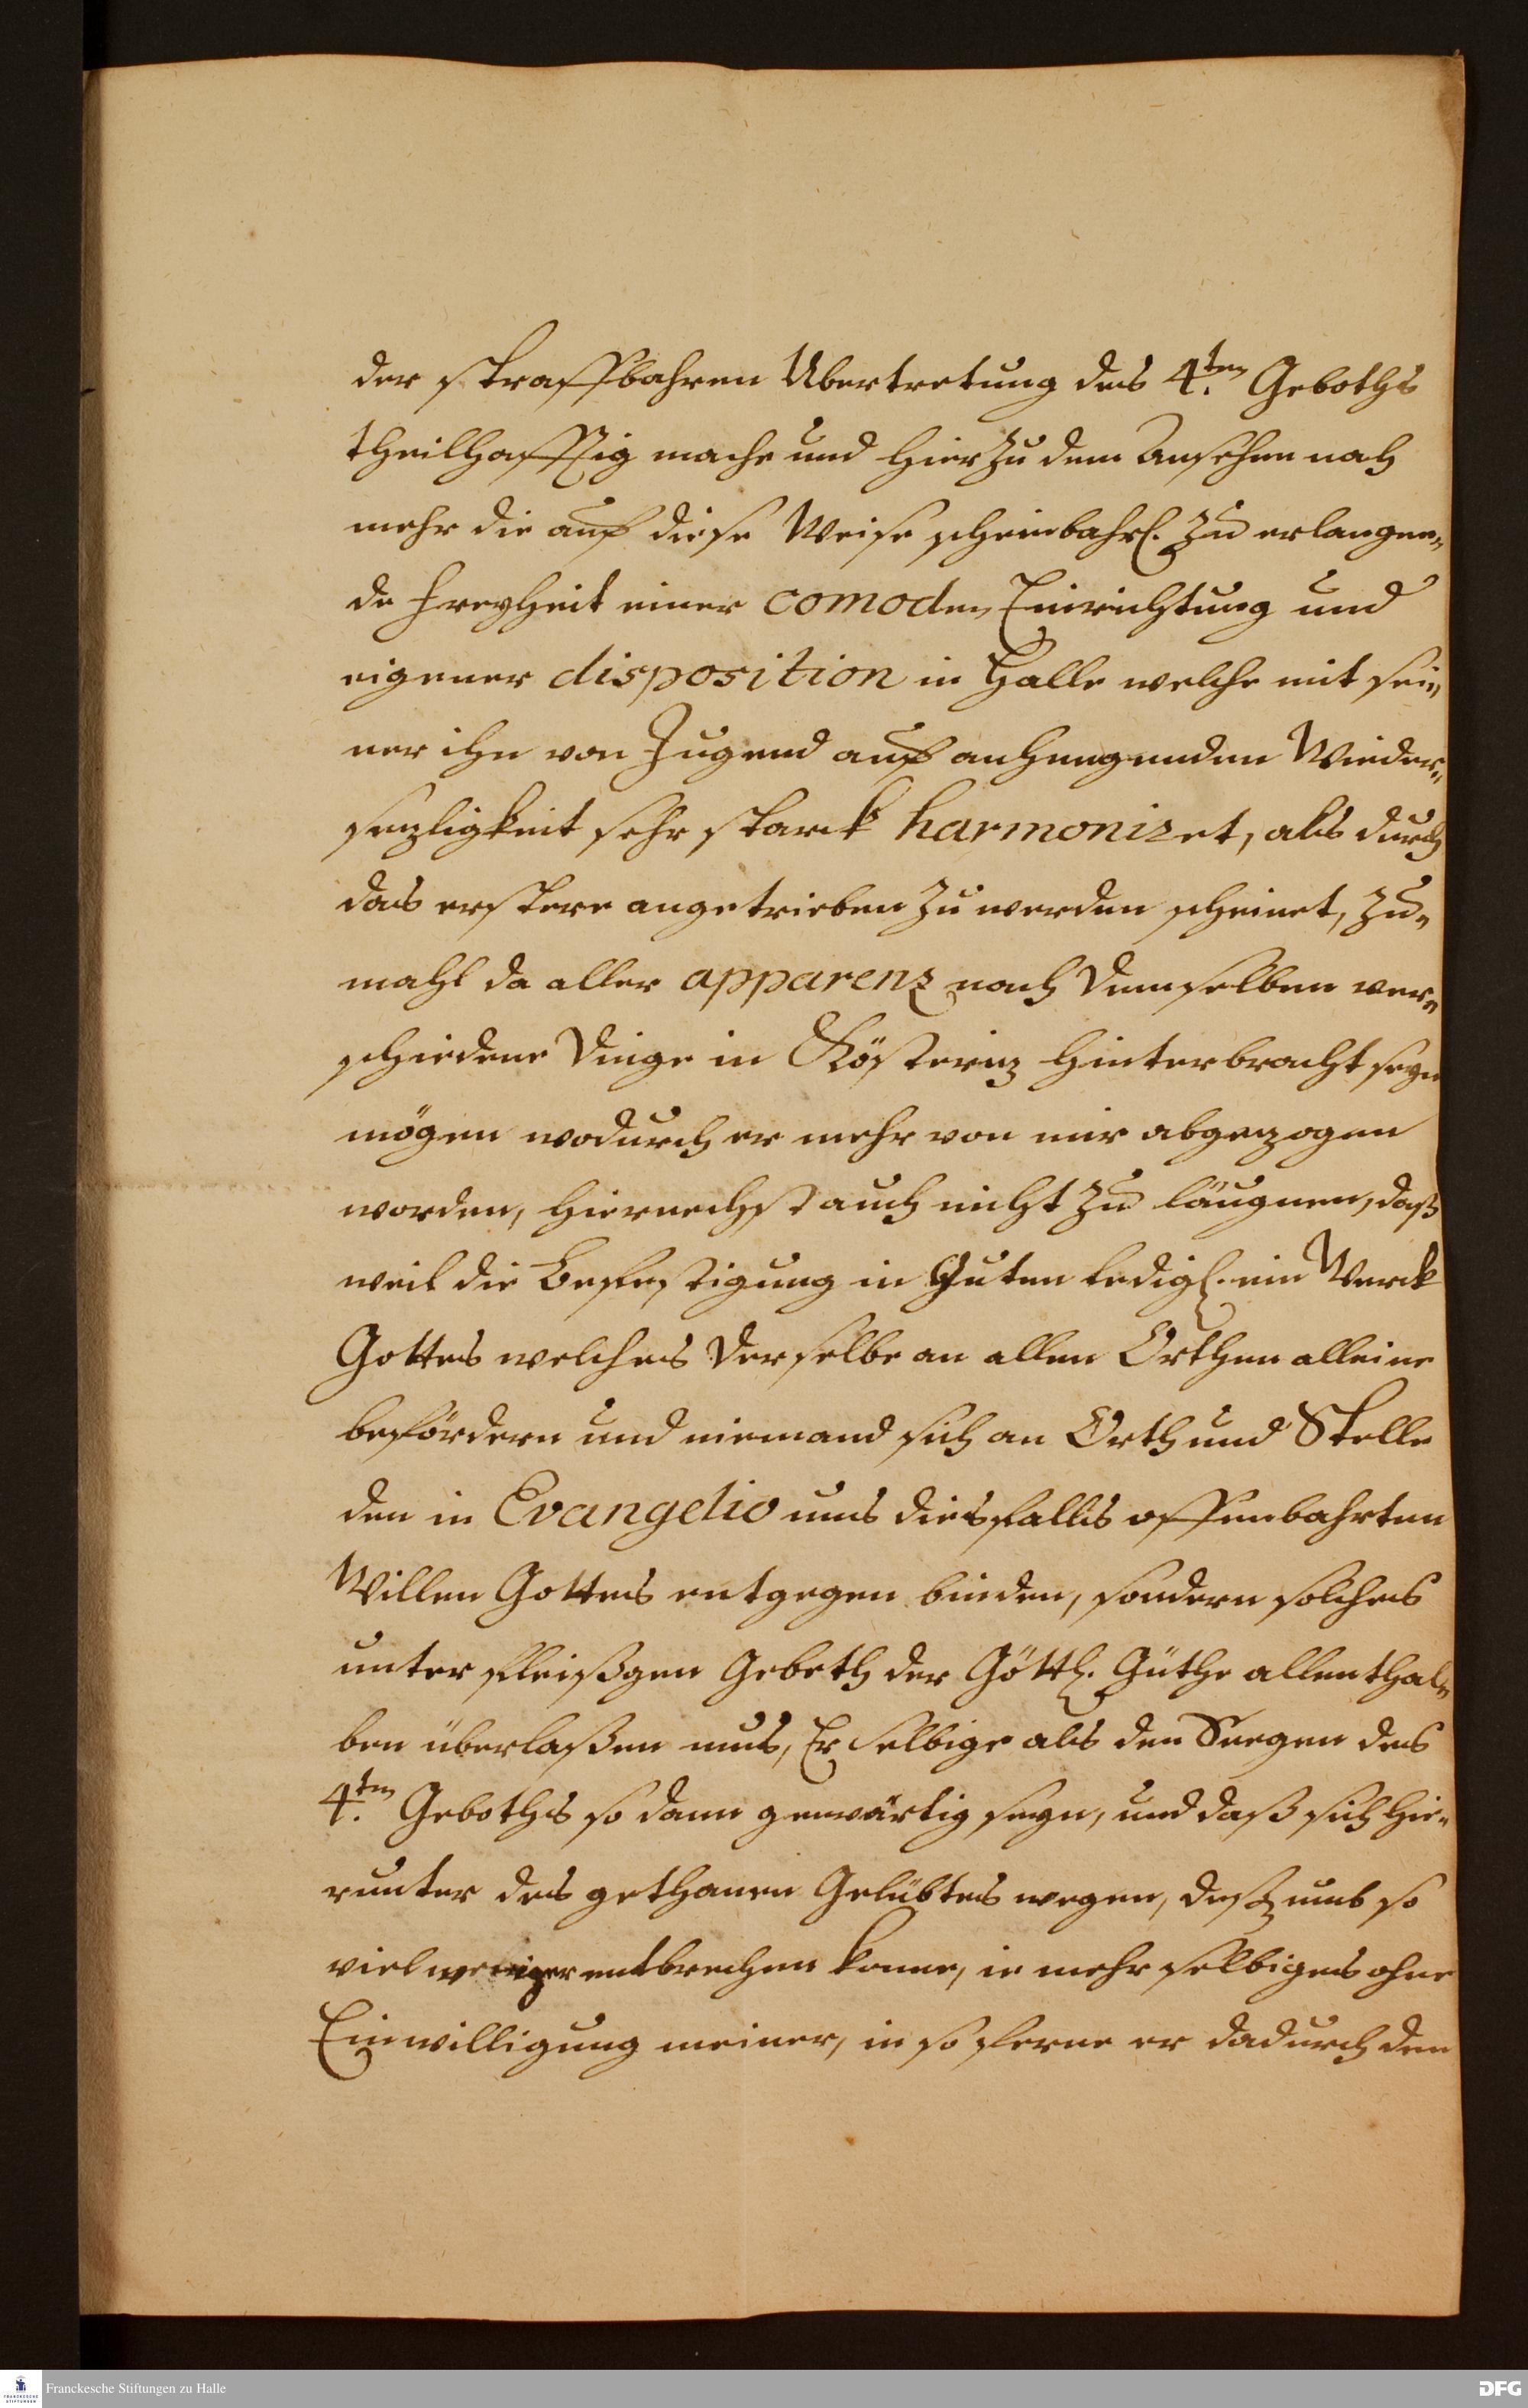 der straffbahren Ubertretung des 4.ten Geboths
theilhafftig mache und hierzu dem Ansehen nach
mehr die auf diese Weise scheinbahrl. zu erlangen-
de Freyheit einer comoden Einrichtung und
eigener disposition in Halle welche mit sei-
ner ihn von Jugend auf anhengenden Wieder-
sezligkeit sehr starck harmoniret, als durch
das erstere angetrieben zu werden scheinet, zu-
mahl da aller apparenz nach demselben ver-
schiedene Dinge in Kösteriz hinterbracht seyn
mögen wodurch er mehr von mir abgezogen
worden, hiernechst auch nicht zu läugnen, daß
weil die Befestigung in Guten ledigl. ein Werck
Gottes welches derselbe an allen Orthen alleine
befördern und niemand sich an Orth und Stelle
den in Evangelio uns diesfalls offenbahrten
Willen Gottes entgegen binden, sondern solches
unter fleißgen Gebeth der Göttl. Güthe allenthal-
ben überlaßen mus, Er selbige als den Seegen des
4.ten Geboths so dann gewärtig seyn, und daß sich hie-
runter des gethanen Gelübtes wegen, desto umb so
viel weniger entbrechen könne, ie mehr selbiges ohne
Einwilligung meiner, in so ferne er dadurch den
Franckesche Stiftungen zu Halle
DFG